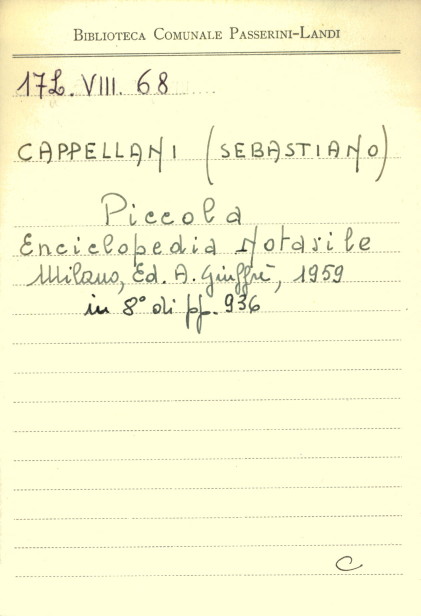 BIBLIOTECA COMUNALE PASSERINI-LANDI
17L. VIII. 68
CAPPELLANI (SEBASTIANO)
Piccola
Enciclopedia Notarile
Milano, Ed. A. Giuffrè, 1959
in 8° di pp. 936
C